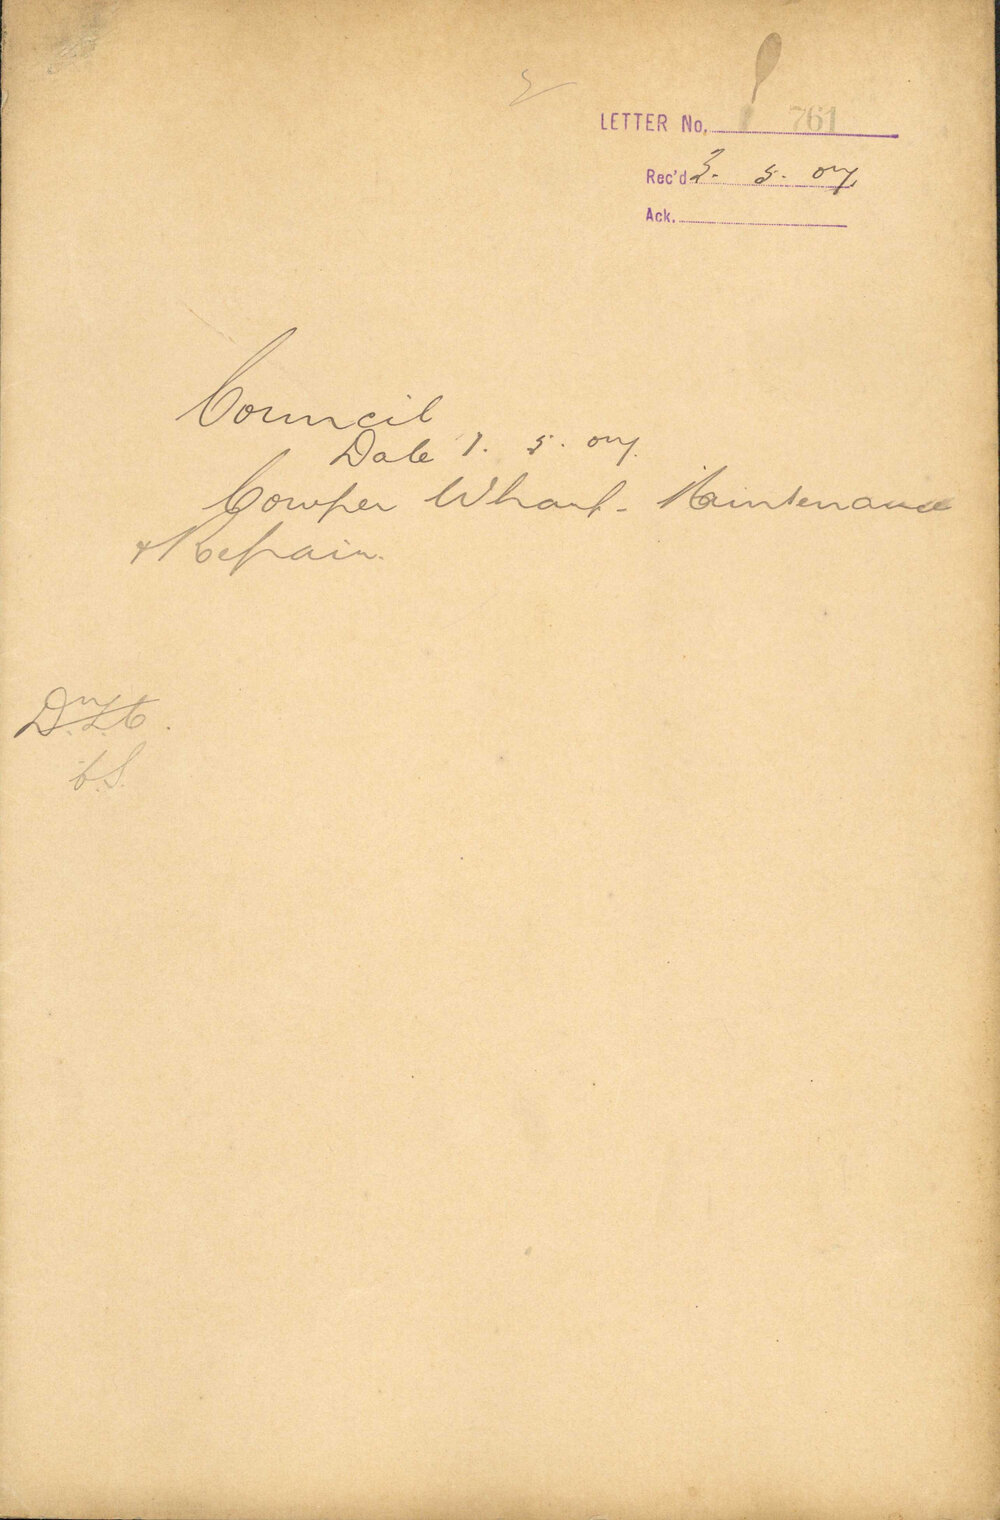 LETTER No. 761
Rec'd 3. 5. 07
Ack.
Council
Date 1. 5. 07.
Cowper Wharf - Maintenance
& Repair.
C.S.